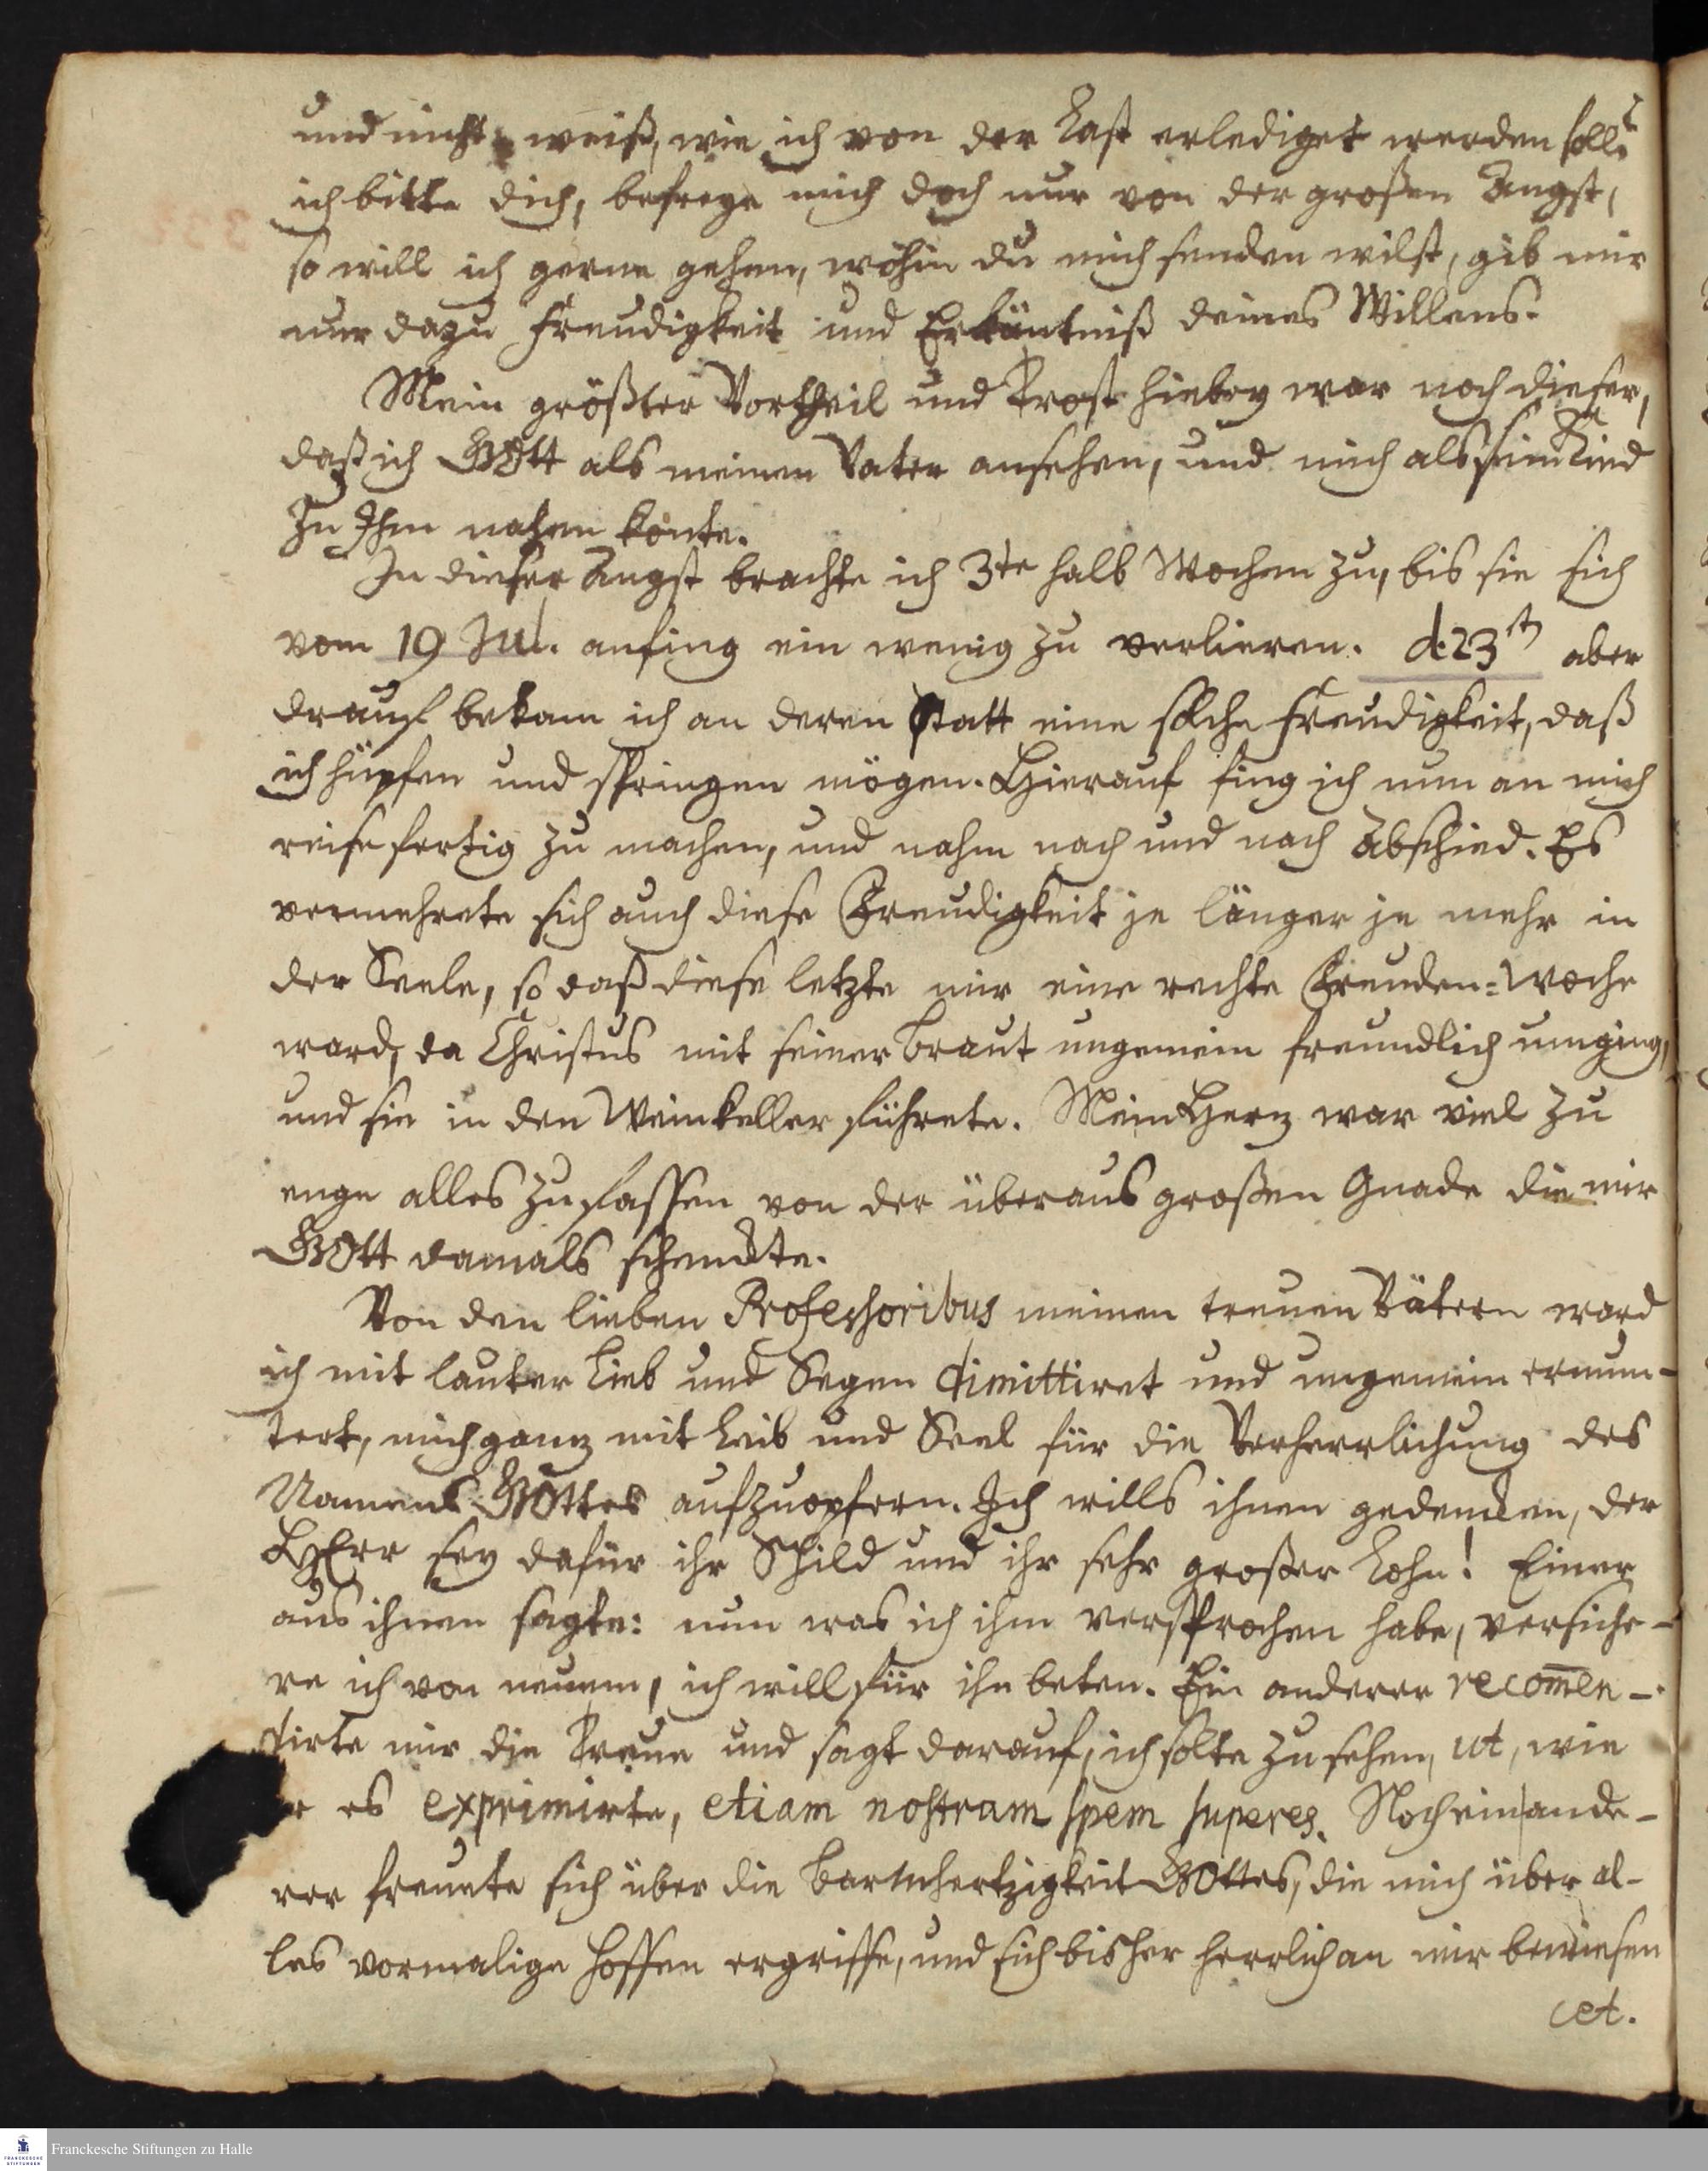 und nicht weiß, wie ich von der Last erlediget werden soll.
ich bitte dich, befreye mich doch nur von der großen Angst,
so will ich gerne gehen, wohin du mich senden wilst, gib mir
nur dazu Freudigkeit und Erkäntniß deines Willens.
Mein größter Vortheil und Trost hiebey war noch dieser,
daß ich GOtt als meinen Vater ansehen, und mich als sein Kind
zu Ihm nahen konte.
In dieser Angst brachte ich 3te halb Wochen zu, bis sie sich
vom 19 Jul. anfing ein wenig zu verlieren. d. 23st aber
drauf bekam ich an deren statt eine solche Freudigkeit, daß
ich hüpfen und springen mögen. Hierauf fing ich nun an mich
reisefertig zu machen, und nahm nach und nach Abschied. Es
vermehrete sich auch diese Freudigkeit je länger je mehr in
der Seele, so daß diese letzte mir eine rechte Freuden-Woche
ward, da Christus mit seiner Braut ungemein freundlich umging,
und sie in den Weinkeller führete. Mein Herz war viel zu
enge alles zu fassen von der überaus großen Gnade die mir
GOtt damals schenckte.
Von den lieben Professoribus meinen treuen Vätern ward
ich mit lauter Lieb und Segen dimittiret und ungemein ermun-
tert, mich ganz mit Leib und Seel für die Verherrlichung des
Namens GOttes aufzuopfern. Ich wills ihnen gedencken, der
HErr sey dafür ihr Schild und ihr sehr großer Lohn! Einer
aus ihnen sagte: nun was ich ihm versprochen habe, versiche-
re ich von neuem, ich will für ihn beten. Ein anderer recom̄en-
dirte mir die Treue und sagt darauf, ich solte zusehen, ut, wie
er es exprimirte, etiam nostram spem superes. Noch ein ande-
rer freuete sich über die Barmhertzigkeit GOttes, die mich über al-
les vormalige Hoffen ergriffe, und sich bisher herrlich an mir bewiesen
cet.
Franckesche Stiftungen zu Halle